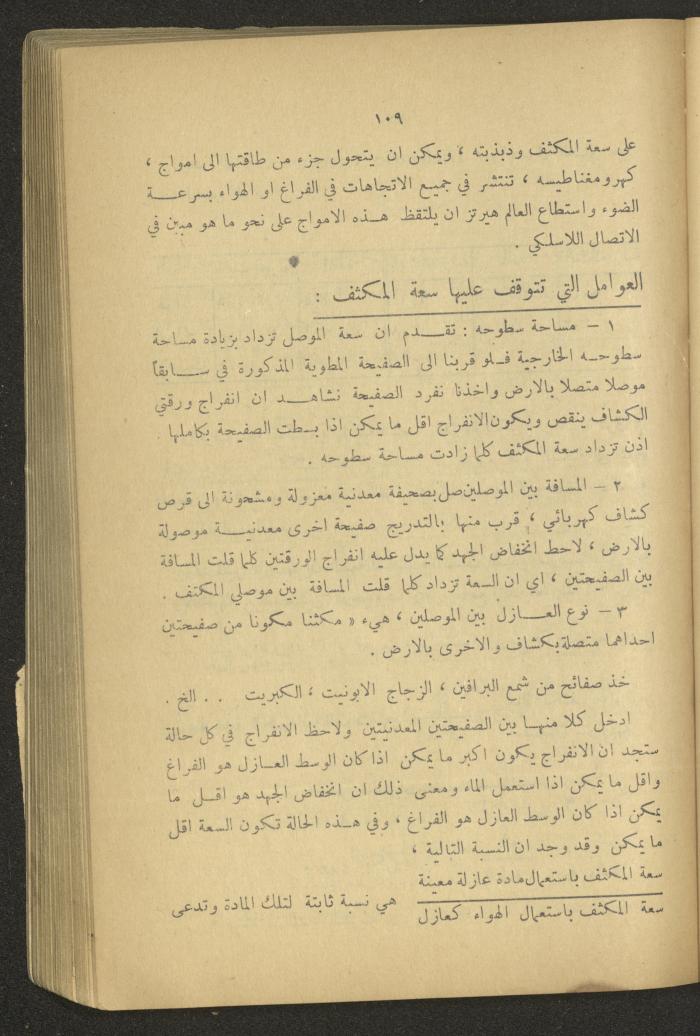 ١٠٩
على سعة المكثف وذبذبته ، ويمكن ان يتحول جزء من طاقتها الى امواج ،
كهرومغناطيسه ، تنتشر في جميع الاتجاهات في الفراغ او الهواء بسرعة
الضوء واستطاع العالم هيرتز ان يلتقظ هذه الامواج على نحو ما هو مبين في
الاتصال اللاسلكي .
العوامل التي تتوقف عليها سعة المكثف :
١ – مساحة سطوحه : تقدم ان سعة الموصل تزداد بزيادة مساحة
سطوحه الخارجية فلو قربنا الى الصفيحة المطوية المذكورة في سابقاً
موصلا متصلا بالارض واخذنا نفرد الصفيحة نشاهد ان انفراج ورقتي
الكشاف ينقص ويكون الانفراج اقل ما يمكن اذا بسطت الصفيحة بكاملها .
اذن تزداد سعة المكثف كلما زادت مساحة سطوحه .
٢ – المسافة بين الموصلين صل بصحيفة معدنية معزولة ومشحونة الى قرص
كشاف كهربائي ، قرب منها بالتدريج صفيحة اخرى معدنية موصولة
بالارض ، لاحط انخفاض الجهد كما يدل عليه انفراج الورقتين كلما قلت المسافة
بين الصفيحتين ، اي ان السعة تزداد كلما قلت المسافة بين موصلي المكثف .
٣ – نوع العازل بين الموصلين ، هيء « مكثنا مكونا من صفيحتين
احداهما متصلة بكشاف والاخرى بالارض .
خذ صفائح من شمع البرافين ، الزجاج الابونيت ، الكبريت . . الخ .
ادخل كلا منها بين الصفيحتين المعدنيتين ولاحظ الانفراج في كل حالة
ستجد ان الانفراج يكون اكبر ما يمكن اذا كان الوسط العازل هو الفراغ
واقل ما يمكن اذا استعمل الماء ومعنى ذلك ان انخفاض الجهد هو اقل ما
يمكن اذا كان الوسط العازل هو الفراغ ، وفي هذه الحالة تكون السعة اقل
ما يمكن وقد وجد ان النسبة التالية ،
سعة المكثف باستعمال مادة عازلة معينة
سعة المكثف باستعمال الهواء كعازل هي نسبة ثابتة لتلك المادة وتدعى